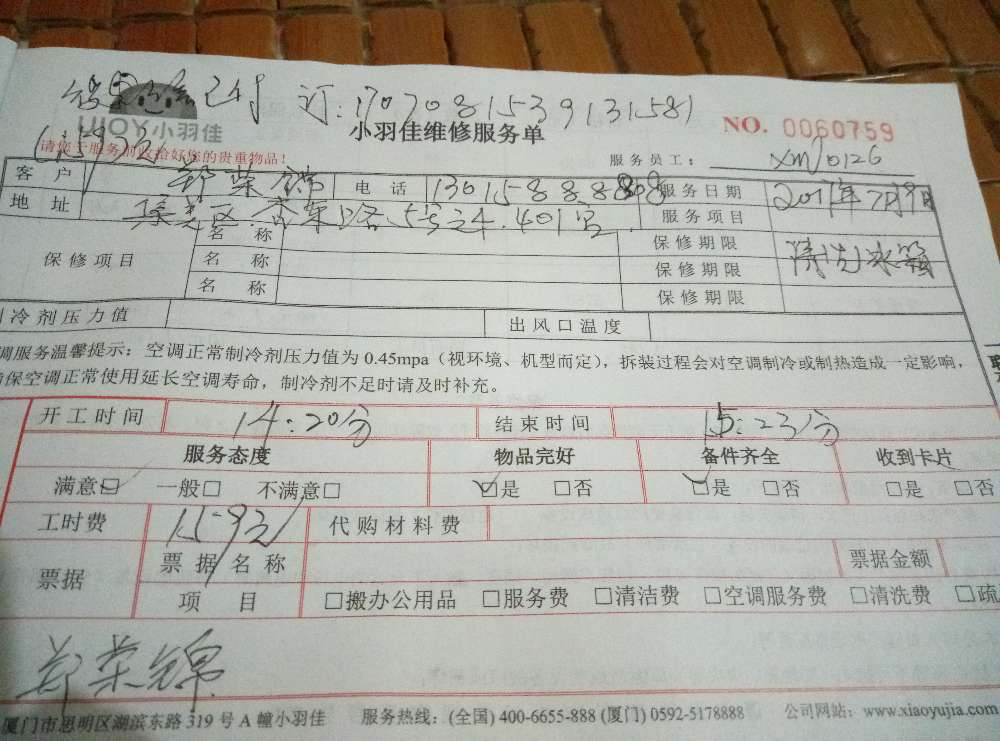 已付 订:1707081539131581
UIOY小羽佳
小羽佳维修服务单
NO. 0060759
(159元)
请您于服务前收拾好您的贵重物品!
服务员工: XM0126
客户 郑荣锦 电话 服务日期 2017年7月9日
地址 集美区杏东路5号24.401室 服务项目 清洗冰箱
保修项目
名称 保修期限
名称 保修期限
名称 保修期限
冷剂压力值 出风口温度
调服务温馨提示:空调正常制冷剂压力值为 0.45mpa(视环境、机型而定),拆装过程会对空调制冷或制热造成一定影响,
保空调正常使用延长空调寿命,制冷剂不足时请及时补充。
开工时间 14:20分 结束时间 15:23分
服务态度 物品完好 备件齐全 收到卡片
满意☑ 一般□ 不满意□ ☑是 □否 ☑是 □否 □是 □否
工时费 159元 代购材料费
票据 票据名称 票据金额
项目 □搬办公用品 □服务费 □清洁费 □空调服务费 □清洗费 □疏
郑荣锦
厦门市思明区湖滨东路 319 号 A 幢小羽佳 服务热线:(全国) 400-6655-888 (厦门) 0592-5178888 公司网站:www.xiaoyujia.com